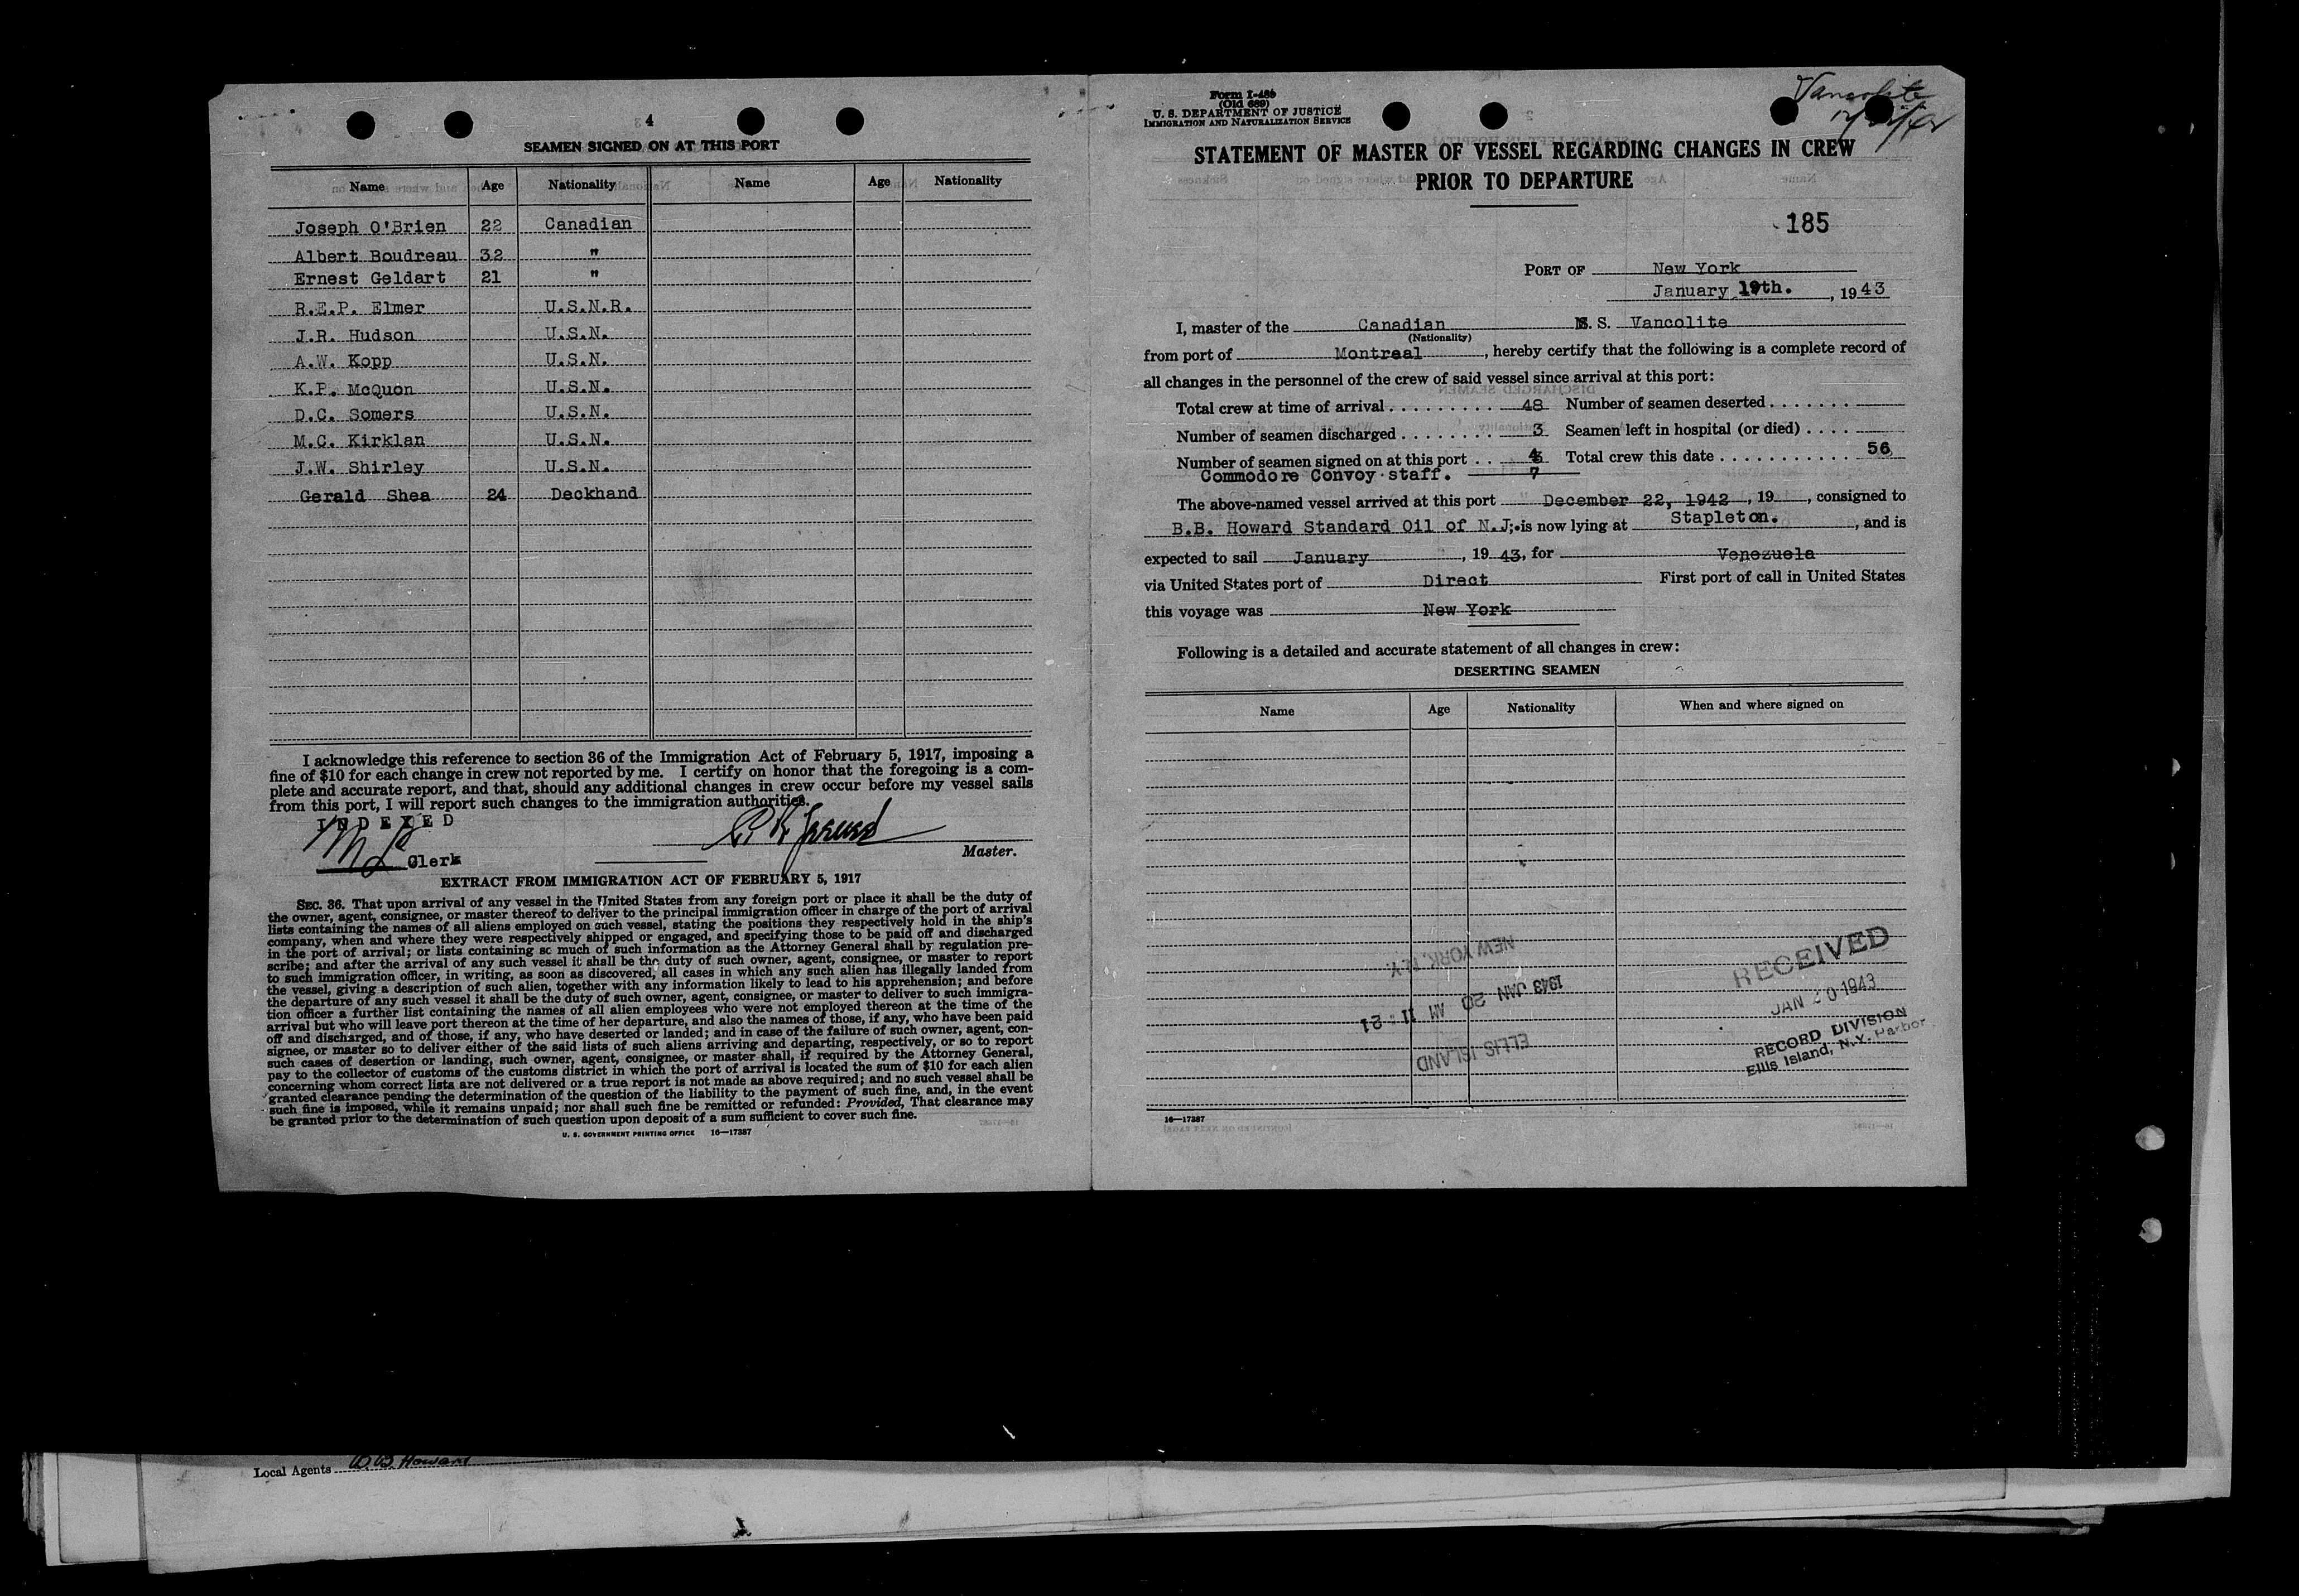 4
SEAMEN SIGNED ON AT THIS PORT
Name Age Nationality Name Age Nationality
Joseph O'Brien 22 Canadian
Albert Boudreau 32 "
Ernest Geldart 21 "
R.E.P. Elmer U.S.N.R.
J.R. Hudson U.S.N.
A.W. Kopp U.S.N.
K.P. McQuon U.S.N.
D.C. Somers U.S.N.
M.C. Kirklan U.S.N.
J.W. Shirley U.S.N.
Gerald Shea 24 Deckhand
I acknowledge this reference to section 36 of the Immigration Act of February 5, 1917, imposing a
fine of $10 for each change in crew not reported by me. I certify on honor that the foregoing is a com-
plete and accurate report, and that, should any additional changes in crew occur before my vessel sails
from this port, I will report such changes to the immigration authorities.
INDEXED
Clerk
Master.
EXTRACT FROM IMMIGRATION ACT OF FEBRUARY 5, 1917
SEC. 36. That upon arrival of any vessel in the United States from any foreign port or place it shall be the duty of
the owner, agent, consignee, or master thereof to deliver to the principal immigration officer in charge of the port of arrival
lists containing the names of all aliens employed on such vessel, stating the positions they respectively hold in the ship's
company, when and where they were respectively shipped or engaged, and specifying those to be paid off and discharged
in the port of arrival; or lists containing so much of such information as the Attorney General shall by regulation pre-
scribe; and after the arrival of any such vessel it shall be the duty of such owner, agent, consignee, or master to report
to such immigration officer, in writing, as soon as discovered, all cases in which any such alien has illegally landed from
the vessel, giving a description of such alien, together with any information likely to lead to his apprehension; and before
the departure of any such vessel it shall be the duty of such owner, agent, consignee, or master to deliver to such immigra-
tion officer a further list containing the names of all alien employees who were not employed thereon at the time of the
arrival but who will leave port thereon at the time of her departure, and also the names of those, if any, who have been paid
off and discharged, and of those, if any, who have deserted or landed; and in case of the failure of such owner, agent, con-
signee, or master so to deliver either of the said lists of such aliens arriving and departing, respectively, or so to report
such cases of desertion or landing, such owner, agent, consignee, or master shall, if required by the Attorney General,
pay to the collector of customs of the customs district in which the port of arrival is located the sum of $10 for each alien
concerning whom correct lists are not delivered or a true report is not made as above required; and no such vessel shall be
granted clearance pending the determination of the question of the liability to the payment of such fine, and, in the event
such fine is imposed, while it remains unpaid; nor shall such fine be remitted or refunded: Provided, That clearance may
be granted prior to the determination of such question upon deposit of a sum sufficient to cover such fine.
U. S. GOVERNMENT PRINTING OFFICE 16—17387
Form I-489
(Old 689)
U. S. DEPARTMENT OF JUSTICE
IMMIGRATION AND NATURALIZATION SERVICE
Vancolite
STATEMENT OF MASTER OF VESSEL REGARDING CHANGES IN CREW
PRIOR TO DEPARTURE
185
PORT OF New York
January 19th., 1943
I, master of the Canadian M. S. Vancolite
(Nationality)
from port of Montreal, hereby certify that the following is a complete record of
all changes in the personnel of the crew of said vessel since arrival at this port:
Total crew at time of arrival . . . . . . . . . 48 Number of seamen deserted . . . . . . .
Number of seamen discharged . . . . . . . . 3 Seamen left in hospital (or died) . . . .
Number of seamen signed on at this port . . 4 Total crew this date . . . . . . . . . . . . 56
Commodore Convoy staff. 7
The above-named vessel arrived at this port December 22, 1942, 19 , consigned to
B.B. Howard Standard Oil of N.J; is now lying at Stapleton. , and is
expected to sail January , 19 43, for Venezuela
via United States port of Direct First port of call in United States
this voyage was New York
Following is a detailed and accurate statement of all changes in crew:
DESERTING SEAMEN
Name Age Nationality When and where signed on
NEW YORK, N.Y.
1943 JAN 20 AM 11:21
ELLIS ISLAND
RECEIVED
JAN 20 1943
RECORD DIVISION
Ellis Island, N.Y. Harbor
16—17387
Local Agents B.B. Howard